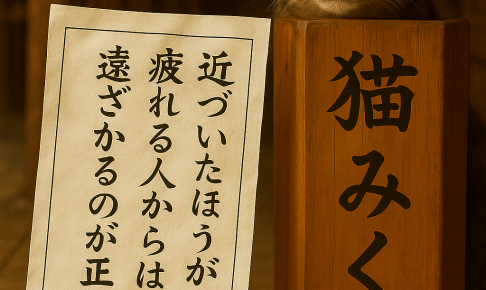 猫みく
近づいたほうが
疲れる人からは
遠ざかるのが正